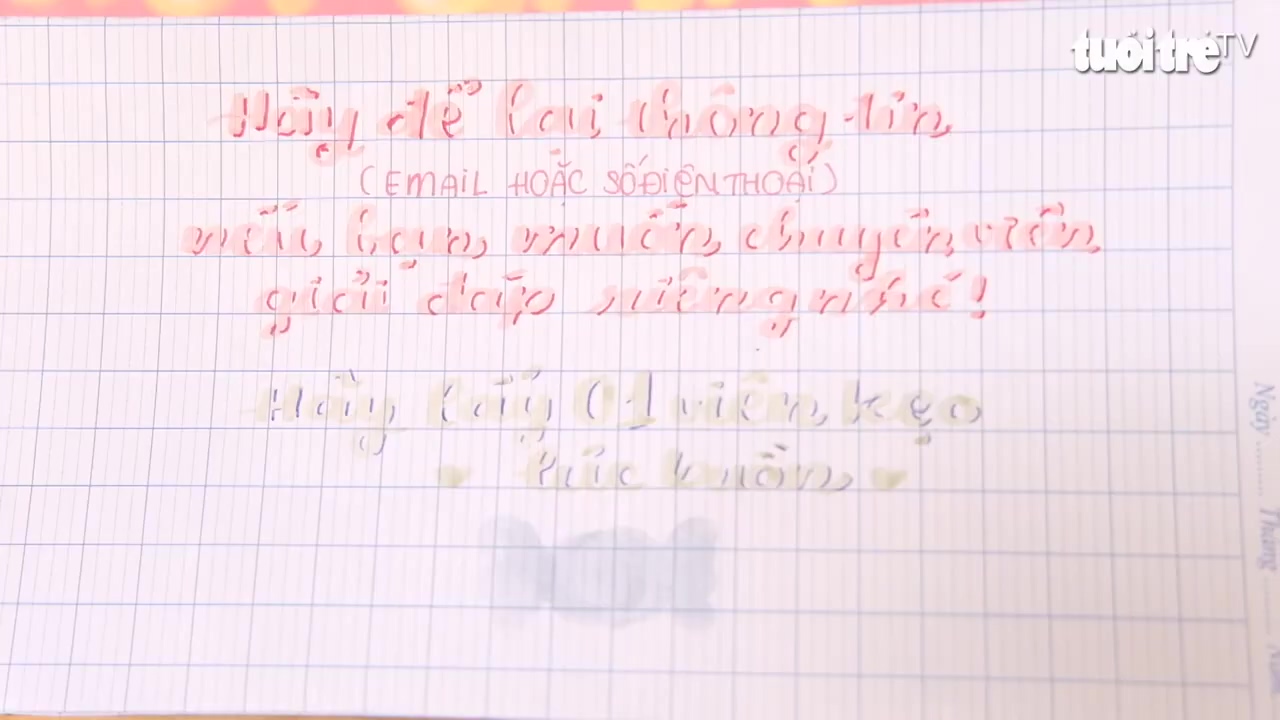 tuổi trẻ TV
Hãy để lại thông tin
(EMAIL HOẶC SỐ ĐIỆN THOẠI)
nếu bạn muốn chuyên viên
giải đáp riêng nhé!
Hãy lấy 01 viên kẹo
trước khi
Ngày ......... Tháng .........